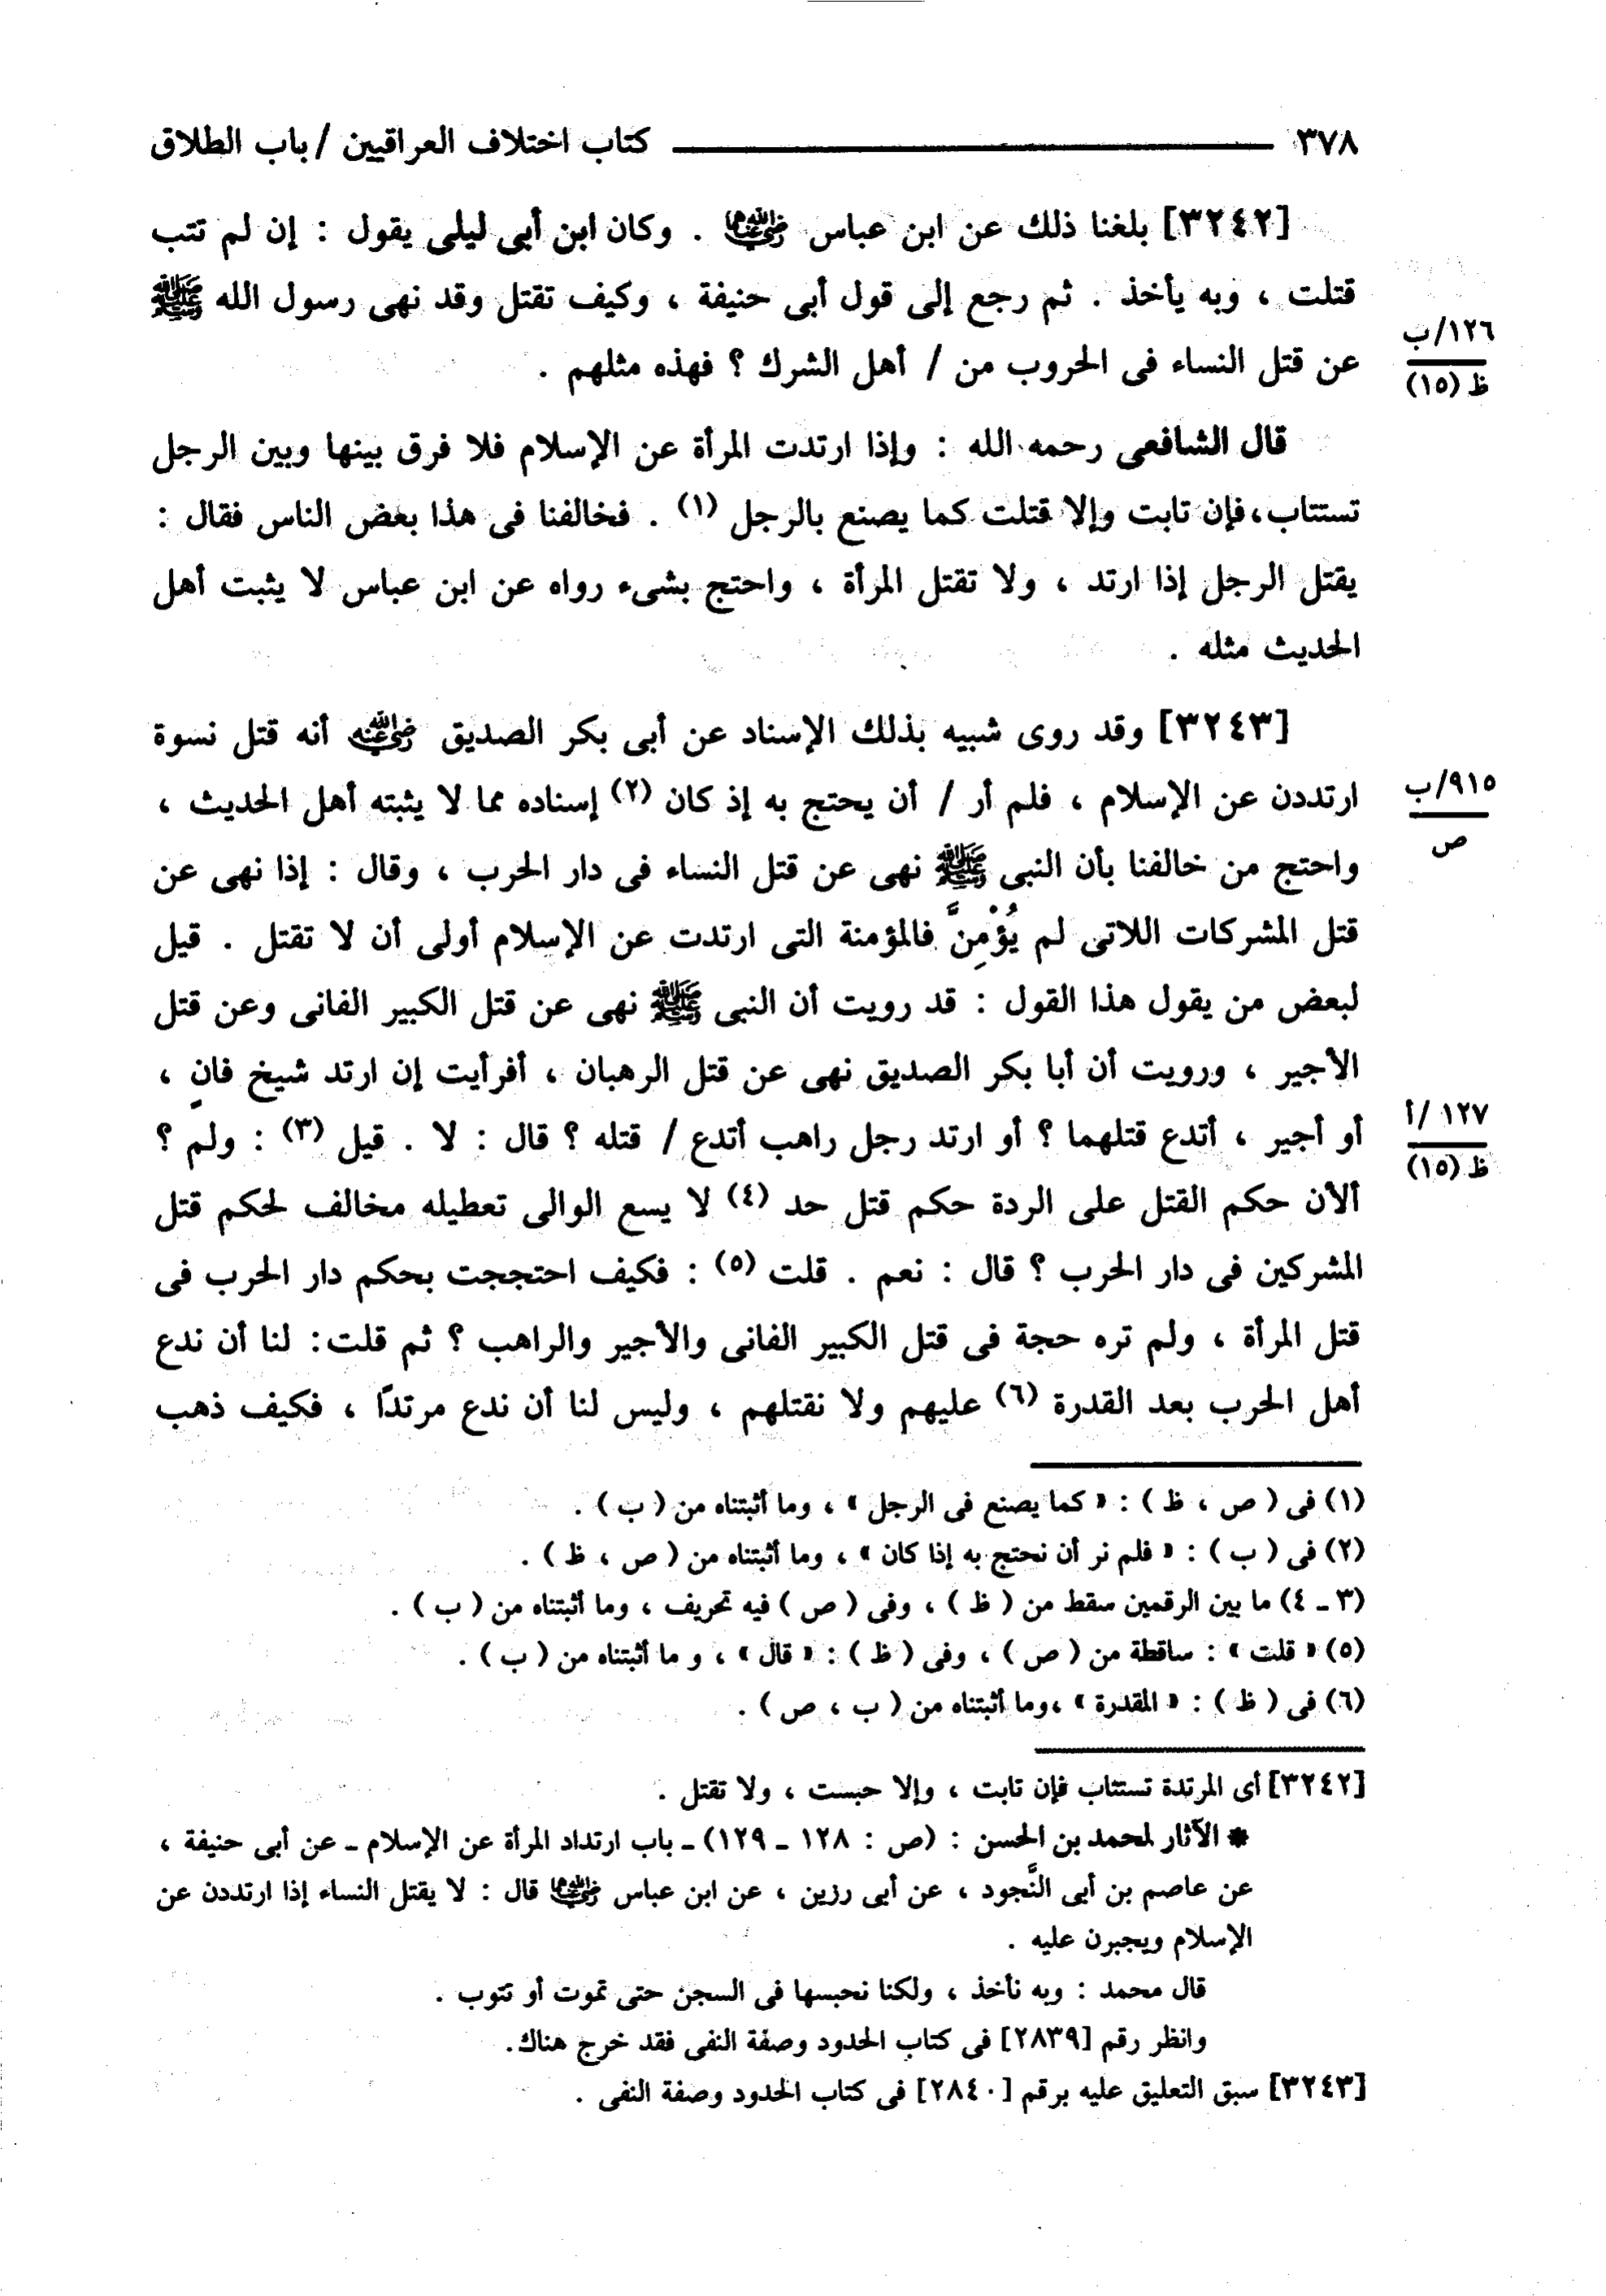 ٣٧٨ كتاب اختلاف العراقيين / باب الطلاق
[٣٢٤٢] بلغنا ذلك عن ابن عباس رضي الله عنهما . وكان ابن أبى ليلى يقول : إن لم تتب
قتلت ، وبه يأخذ . ثم رجع إلى قول أبى حنيفة ، وكيف تقتل وقد نهى رسول الله ﷺ
١٢٦/ب
ظ (١٥)
عن قتل النساء فى الحروب من / أهل الشرك ؟ فهذه مثلهم .
قال الشافعى رحمه الله : وإذا ارتدت المرأة عن الإسلام فلا فرق بينها وبين الرجل
تستتاب، فإن تابت وإلا قتلت كما يصنع بالرجل (١) . فخالفنا فى هذا بعض الناس فقال :
يقتل الرجل إذا ارتد ، ولا تقتل المرأة ، واحتج بشىء رواه عن ابن عباس لا يثبت أهل
الحديث مثله .
[٣٢٤٣] وقد روى شبيه بذلك الإسناد عن أبى بكر الصديق رضي الله عنه أنه قتل نسوة
ارتددن عن الإسلام ، فلم أر / أن يحتج به إذ كان (٢) إسناده مما لا يثبته أهل الحديث ،
٩١٥/ب
ص
واحتج من خالفنا بأن النبى ﷺ نهى عن قتل النساء فى دار الحرب ، وقال : إذا نهى عن
قتل المشركات اللاتى لم يُؤْمِنَّ فالمؤمنة التى ارتدت عن الإسلام أولى أن لا تقتل . قيل
لبعض من يقول هذا القول : قد رويت أن النبى ﷺ نهى عن قتل الكبير الفانى وعن قتل
الأجير ، ورويت أن أبا بكر الصديق نهى عن قتل الرهبان ، أفرأيت إن ارتد شيخ فانٍ ،
أو أجير ، أتدع قتلهما ؟ أو ارتد رجل راهب أتدع / قتله ؟ قال : لا . قيل (٣) : ولم ؟
١٢٧ /أ
ظ (١٥)
ألأن حكم القتل على الردة حكم قتل حد (٤) لا يسع الوالى تعطيله مخالف لحكم قتل
المشركين فى دار الحرب ؟ قال : نعم . قلت (٥) : فكيف احتججت بحكم دار الحرب فى
قتل المرأة ، ولم تره حجة فى قتل الكبير الفانى والأجير والراهب ؟ ثم قلت: لنا أن ندع
أهل الحرب بعد القدرة (٦) عليهم ولا نقتلهم ، وليس لنا أن ندع مرتدًا ، فكيف ذهب
(١) فى ( ص ، ظ ) : « كما يصنع فى الرجل » ، وما أثبتناه من ( ب ) .
(٢) فى ( ب ) : « فلم نر أن نحتج به إذا كان » ، وما أثبتناه من ( ص ، ظ ) .
(٣ - ٤) ما بين الرقمين سقط من ( ظ ) ، وفى ( ص ) فيه تحريف ، وما أثبتناه من ( ب ) .
(٥) « قلت » : ساقطة من ( ص ) ، وفى ( ظ ) : « قال » ، و ما أثبتناه من ( ب ) .
(٦) فى ( ظ ) : « المقدرة » ، وما أثبتناه من ( ب ، ص ) .
[٣٢٤٢] أى المرتدة تستتاب فإن تابت ، وإلا حبست ، ولا تقتل .
* الآثار لمحمد بن الحسن : (ص : ١٢٨ - ١٢٩) - باب ارتداد المرأة عن الإسلام - عن أبى حنيفة ،
عن عاصم بن أبى النَّجود ، عن أبى رزين ، عن ابن عباس رضي الله عنهما قال : لا يقتل النساء إذا ارتددن عن
الإسلام ويجبرن عليه .
قال محمد : وبه نأخذ ، ولكنا نحبسها فى السجن حتى تموت أو تتوب .
وانظر رقم [٢٨٣٩] فى كتاب الحدود وصفة النفى فقد خرج هناك.
[٣٢٤٣] سبق التعليق عليه برقم [٢٨٤٠] فى كتاب الحدود وصفة النفى .